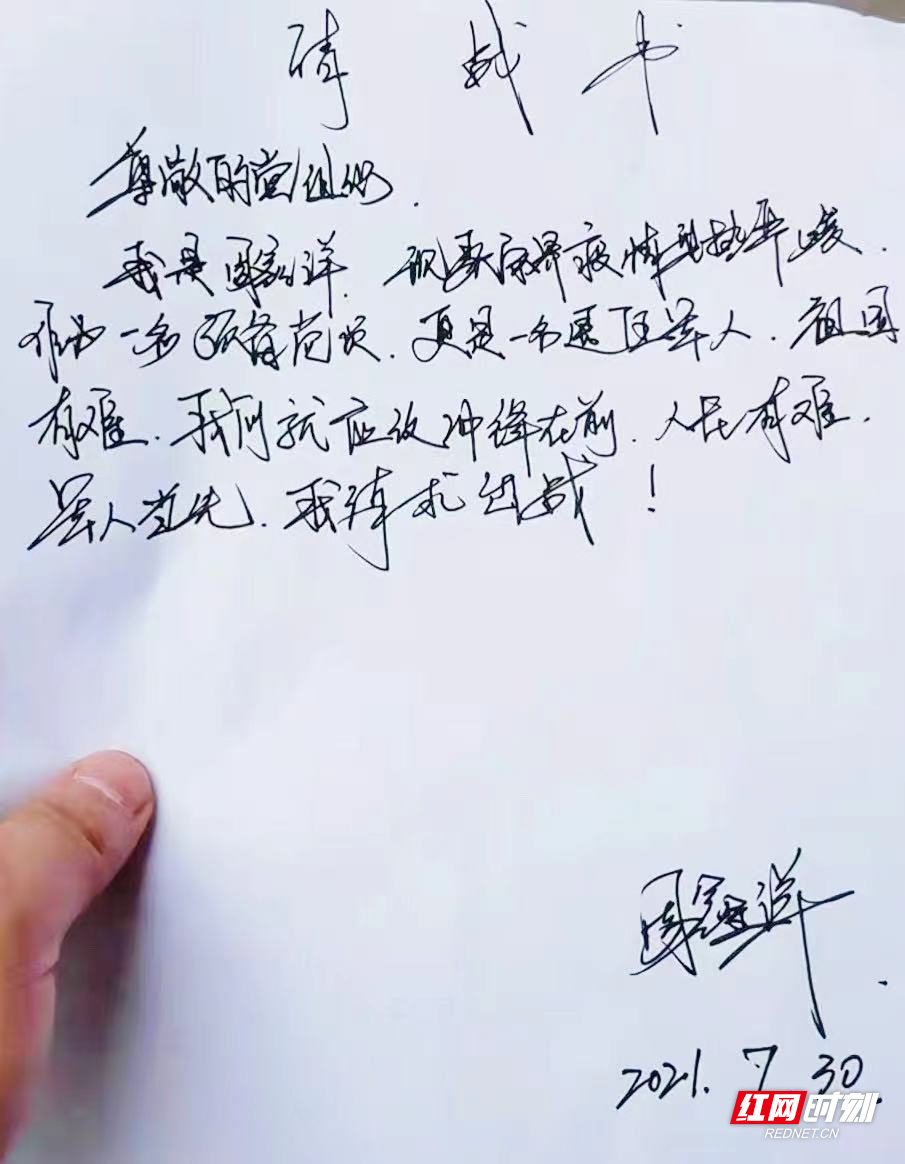 请战书
尊敬的党组织.
我是周 洋. 现张家界疫情形势严峻.
作为一名预备党员. 更是一名退伍军人. 祖国
有难. 我们就应该冲锋在前. 人民有难.
军人首先. 我请求出战!
周 洋.
2021. 7 30.
红网时刻
REDNET.CN